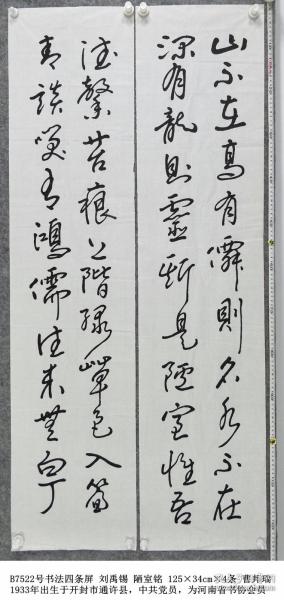 山不在高有僊則名水不在
深有龍則靈斯是陋室惟吾
德馨苔痕上階綠草色入簾
青談笑有鴻儒往来無白丁
B7522号书法四条屏 刘禹锡 陋室铭 125×34cm×4条 曹邦瑞
1933年出生于开封市通许县，中共党员，为河南省书协会员